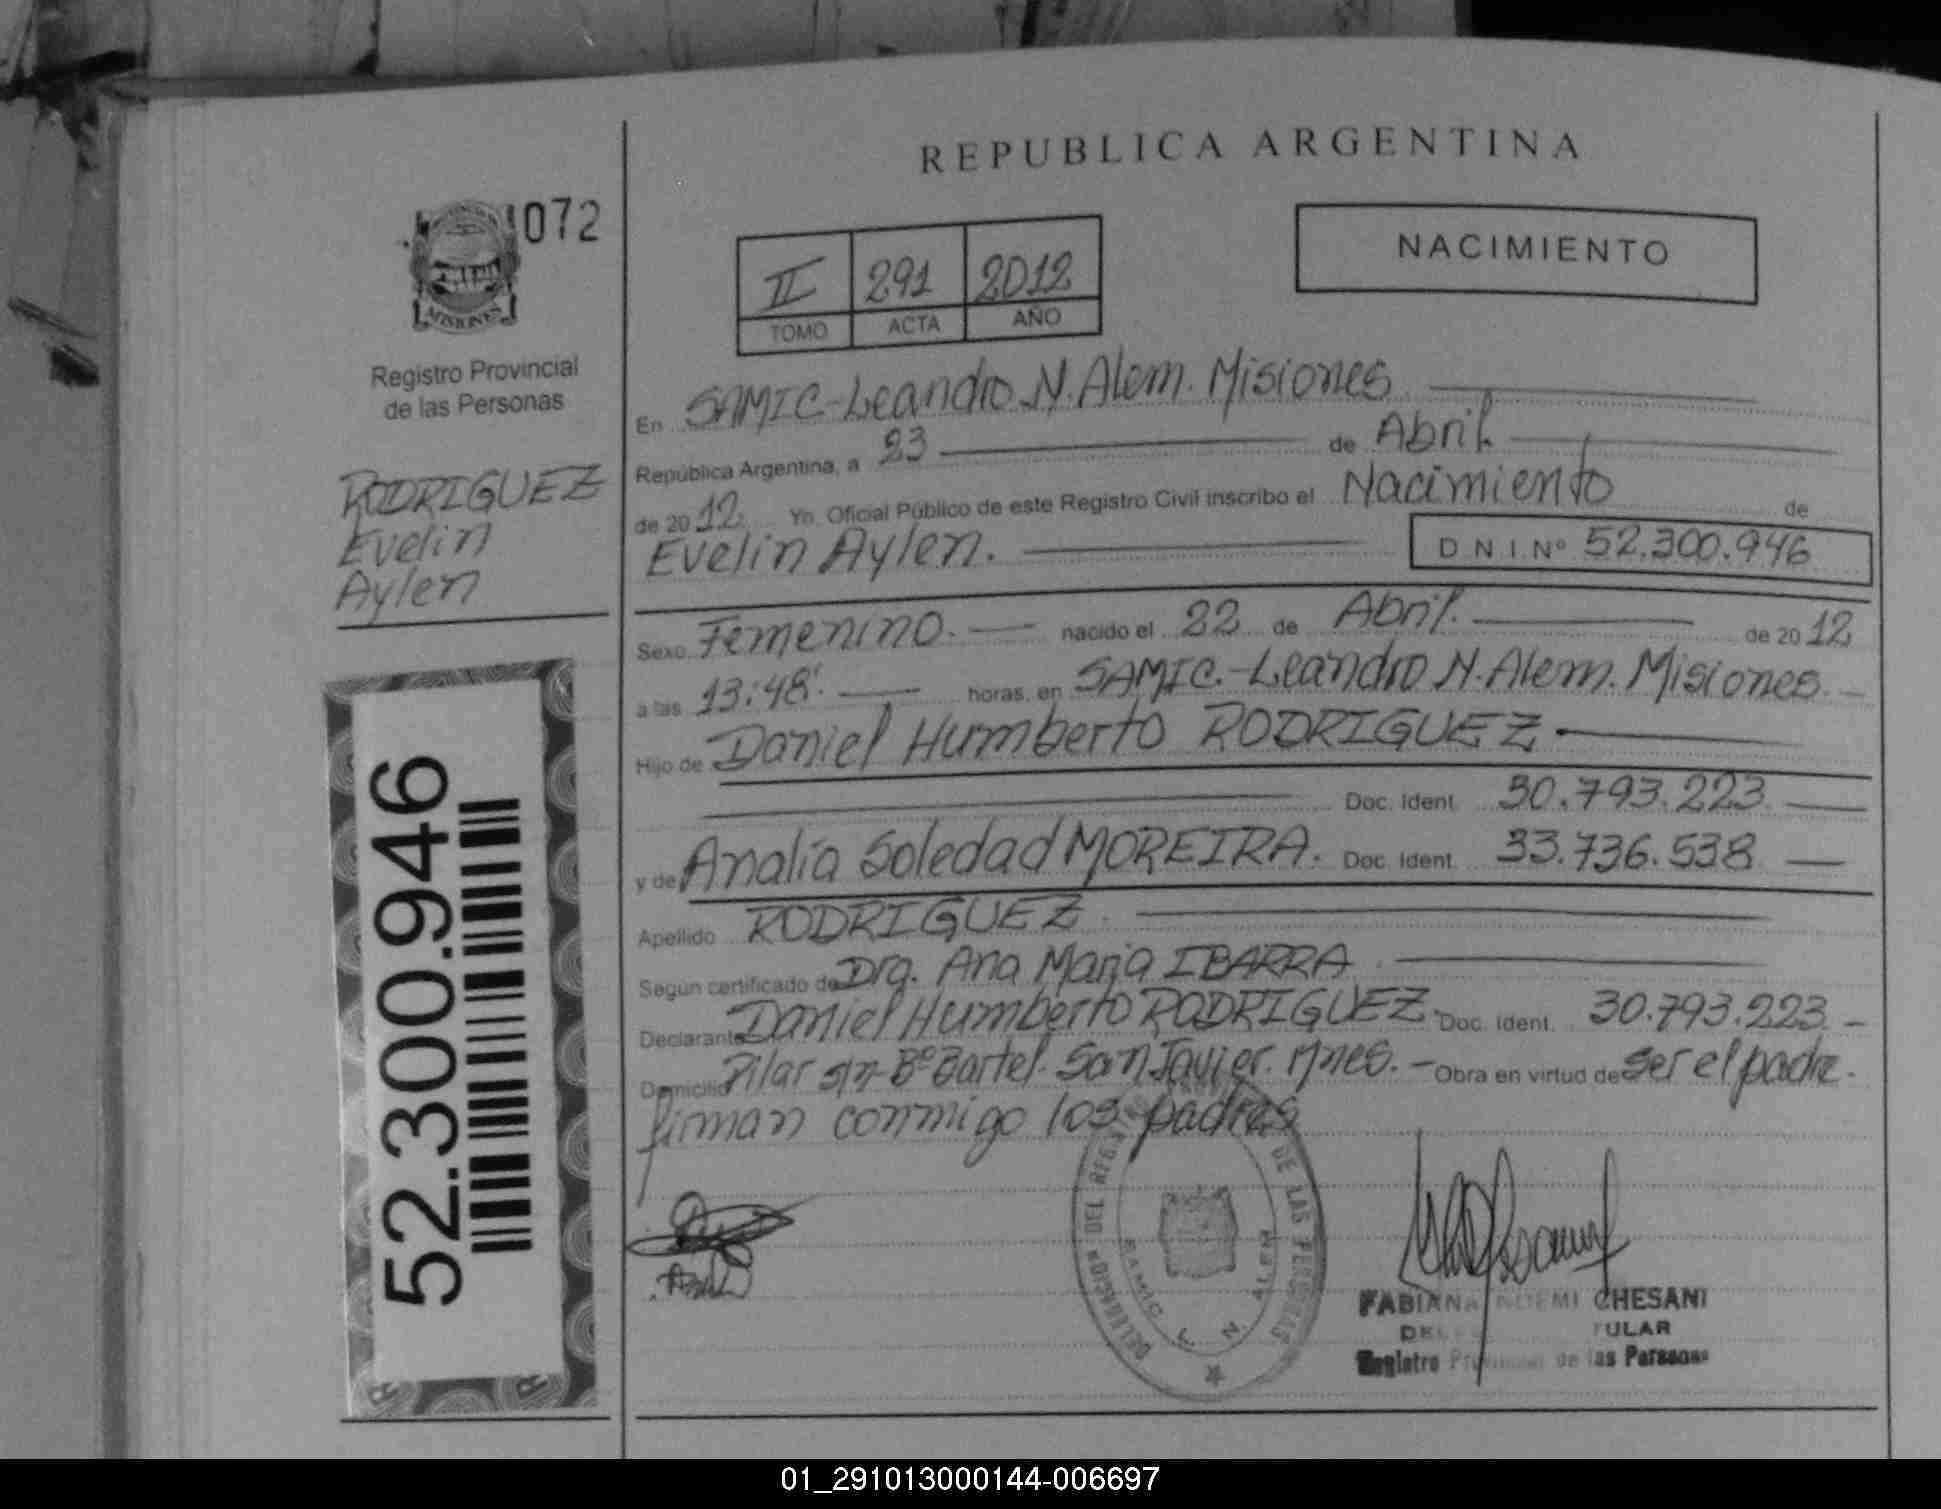 REPUBLICA ARGENTINA
1072
MISIONES
Registro Provincial
de las Personas
RODRIGUEZ
Evelin
Aylen
52.300.946
II 291 2012
TOMO ACTA AÑO
NACIMIENTO
En SAMIC-Leandro N. Alem. Misiones
República Argentina, a 23 de Abril
de 2012. Yo, Oficial Público de este Registro Civil inscribo el Nacimiento de
Evelin Aylen. D.N.I.Nº 52.300.946
Sexo Femenino. nacido el 22 de Abril. de 2012
a las 13:48'. horas, en SAMIC.-Leandro N. Alem. Misiones.
Hijo de Daniel Humberto RODRIGUEZ
Doc. Ident. 30.793.223
y de Analía Soledad MOREIRA. Doc. Ident. 33.736.538
Apellido RODRIGUEZ.
Según certificado de Dra. Ana Maria IBARRA
Declarante Daniel Humberto RODRIGUEZ. Doc. Ident. 30.793.223.
Domicilio Pilar s/n Bº Bartel. San Javier. Mnes. Obra en virtud de ser el padre.
firman conmigo los padres
DELEGACION DEL REGISTRO DE LAS PERSONAS
SAMIC L. N. ALEM
FABIANA NOEMI CHESANI
TULAR
Registro Provincial de las Personas
01_291013000144-006697